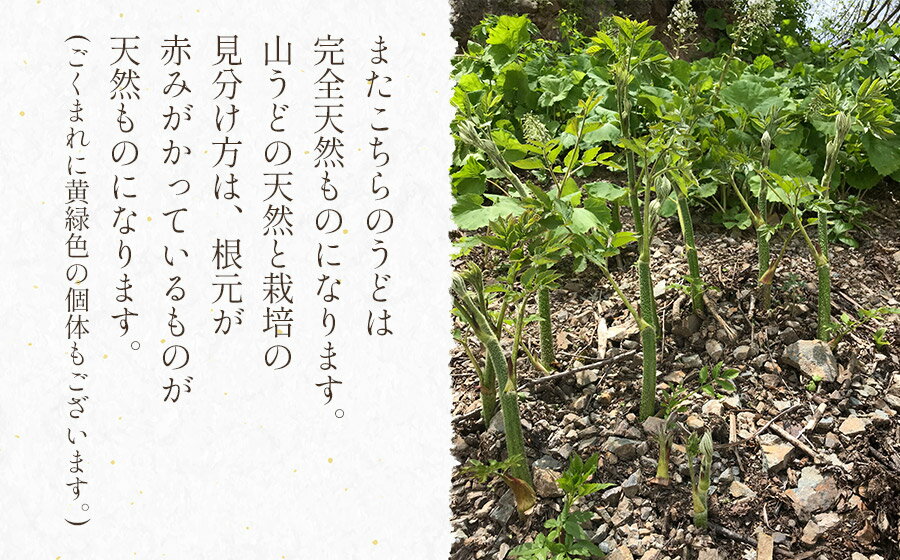 またこちらのうどは
完全天然ものになります。
山うどの天然と栽培の
見分け方は、根元が
赤みがかっているものが
天然ものになります。
(ごくまれに黄緑色の個体もございます。)